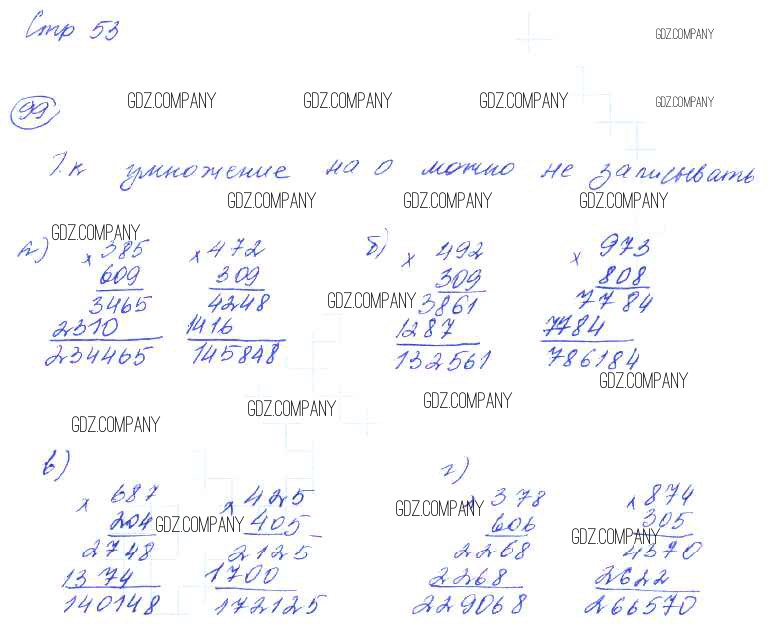 Стр 53
GDZ.COMPANY
99
GDZ.COMPANY GDZ.COMPANY GDZ.COMPANY GDZ.COMPANY
Т.к умножение на 0 можно не записывать
GDZ.COMPANY GDZ.COMPANY GDZ.COMPANY
GDZ.COMPANY
а) × 385 × 472 б) × 492 × 973
609 309 309 808
3465 4248 GDZ.COMPANY 3861 7784
2310 1416 1287 7784
234465 145848 132561 786184
GDZ.COMPANY
GDZ.COMPANY GDZ.COMPANY GDZ.COMPANY
в) г)
× 687 × 425 × 378 × 874
GDZ.COMPANY
204 405 606 305
GDZ.COMPANY GDZ.COMPANY
2748 2125 2268 4370
1374 1700 2268 2622
140148 172125 229068 266570